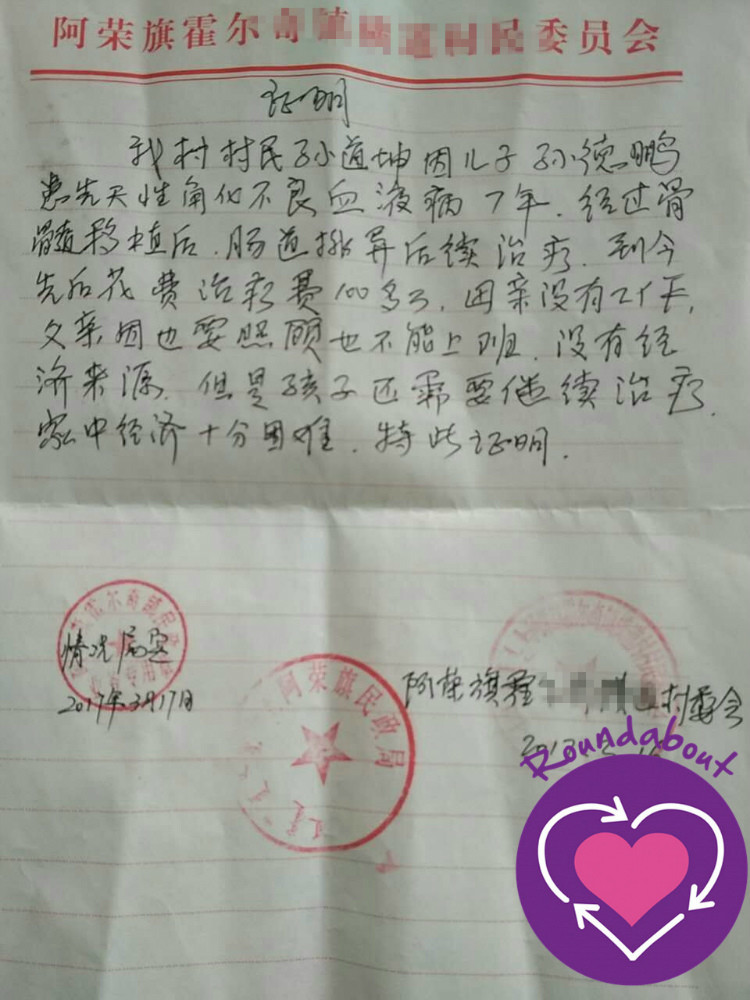 阿荣旗霍尔奇镇村民委员会
证明
我村村民孙道坤因儿子孙德鹏
患先天性角化不良血液病7年.经过骨
髓移植后.肠道排异后续治疗.到今
先后花费治疗费100多万.母亲没有工作,
父亲因也要照顾也不能上班.没有经
济来源.但是孩子还需要继续治疗.
家中经济十分困难.特此证明.
情况属实
2017年3月17日
阿荣旗民政局
阿荣旗霍村委会
Roundabout